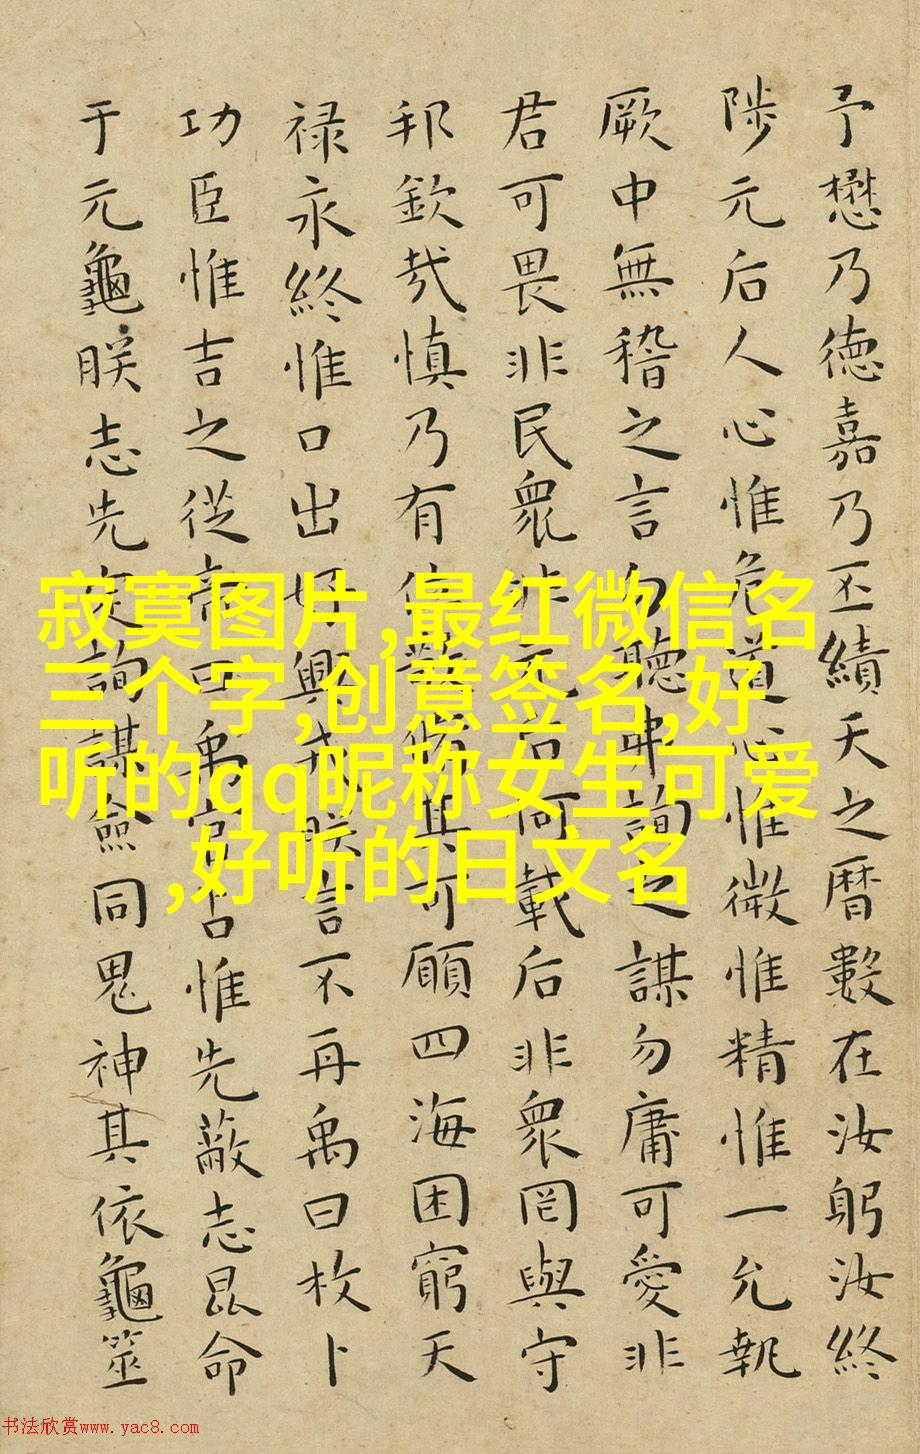 予懋乃德嘉乃丕績天之曆數在汝躬汝終
陟元后人心惟危道心惟微惟精惟一允執
厥中無稽之言勿聽弗詢之謀勿庸可愛非
君可畏非民衆非元后何載后非衆罔與守
邦欽哉慎乃有位敬修其可願四海困窮天
禄永終惟口出好興戎朕言不再禹曰枚卜
功臣惟吉之從帝曰禹官占惟先蔽志昆命
于元龜朕志先定詢謀僉同鬼神其依龜筮
寂寞图片,最红微信名
三个字,创意签名,好
听的qq昵称女生可爱
,好听的日文名
书法欣赏www.yac8.com